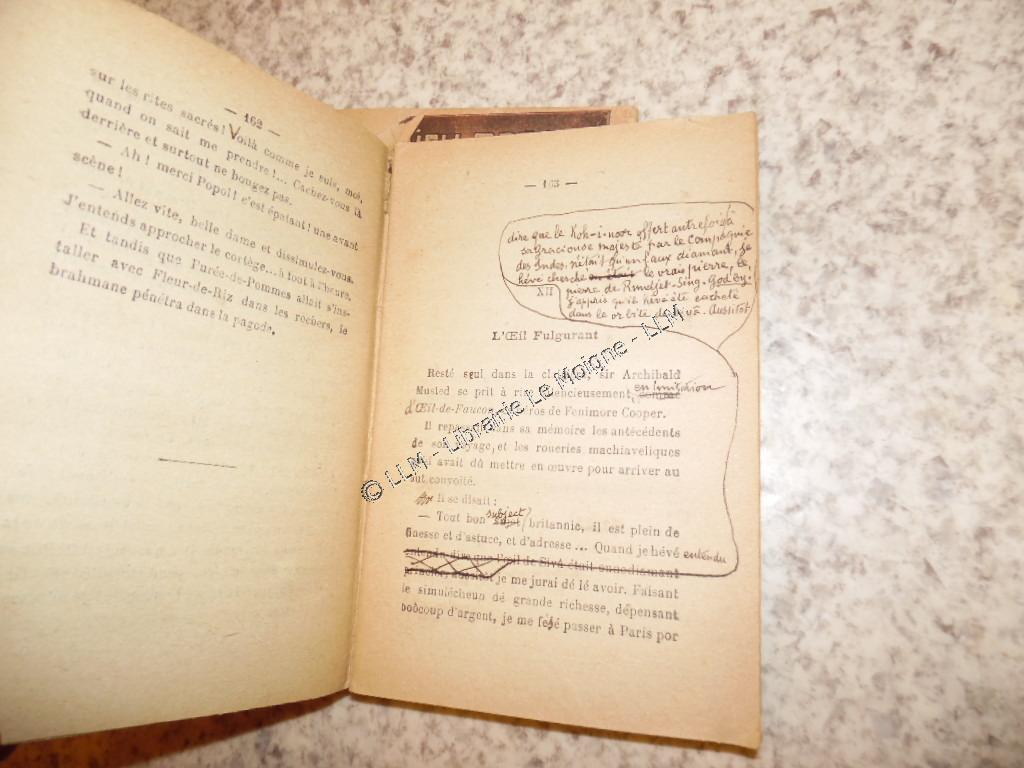 — 162 —
sur les rites sacrés! Voilà comme je suis, moi,
quand on sait me prendre!... Cachez-vous là
derrière et surtout ne bougez pas.
— Ah! merci Popol! c'est épatant! une avant
scène!
— Allez vite, belle dame et dissimulez-vous.
J'entends approcher le cortège... à tout à l'heure.
Et tandis que l'urée-de-Pommes allait s'ins-
taller avec Fleur-de-Riz dans les rochers, le
brahmane pénétra dans la pagode.
— 163 —
dire que le Koh-i-noor offert autrefois à
sa gracieuse majesté par le Compagnie
des Indes, n'était qu'un faux diamant, je
hévé cherché où était le vraie pierre, le
pierre de Rundjet-Sing. God by.
j'appris qu'il hévé été cacheté
dans le orbite de Sivâ. Aussitôt
XII
L'Œil Fulgurant
Resté seul dans la sir Archibald
Musted se prit à silencieusement, comme en imitation
d'Œil-de-Faucon héros de Fenimore Cooper.
Il dans sa mémoire les antécédents
de son voyage, et les roueries machiavéliques
avait dû mettre en œuvre pour arriver au
but convoité.
Il se disait :
— Tout bon subject britannic, il est plein de
finesse et d'astuce, et d'adresse... Quand je hévé entendu
entendu dire que l'œil de Sivâ était une diamant
je me jurai dé lé avoir. Faisant
le simulécheun dé grande richesse, dépensant
boôcoup d'argent, je me fésé passer à Paris por
© LLM - Librairie Le Moigne - LLM